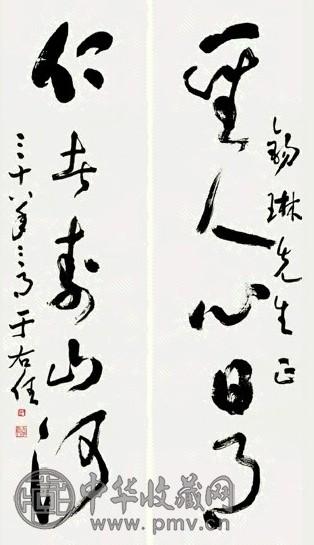 聖人心日月
錫琳先生正
仁者壽山河
三十八年三月于右任
中华收藏网
www.pmv.cn